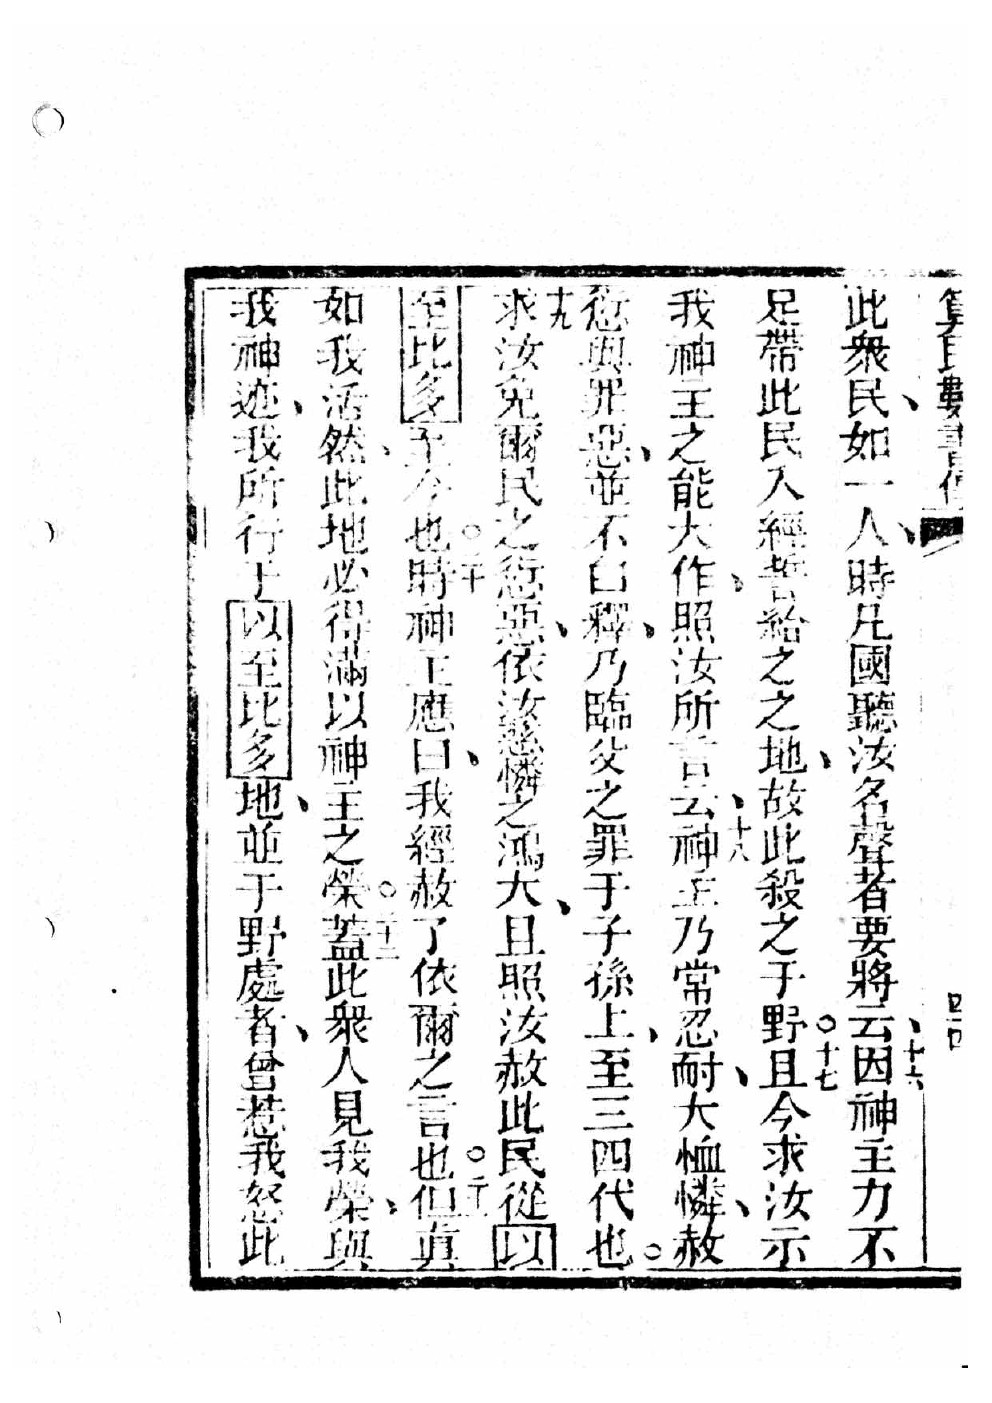 算民數書傳
四十四
此衆民、如一人、時凡國聽汝名聲者要將云、十六因神主力不
足帶此民入經誓給之之地、故此殺之于野○十七且今求汝示
我神主之能大作、照汝所言云、十八神主乃常忍耐、大恤憐、赦
愆與罪惡、並不曰釋、乃臨父之罪于子孫上、至三四代也○
十九求汝免爾民之愆惡、依汝慈憐之鴻大、且照汝赦此民從以
至比多至今也○二十時神主應曰、我經赦了依爾之言也○二一但眞
如我活、然此地必得滿以神主之榮○二十二蓋此衆人見我榮、與
我神迹、我所行于以至比多地、並于野處者、曾惹我怒此